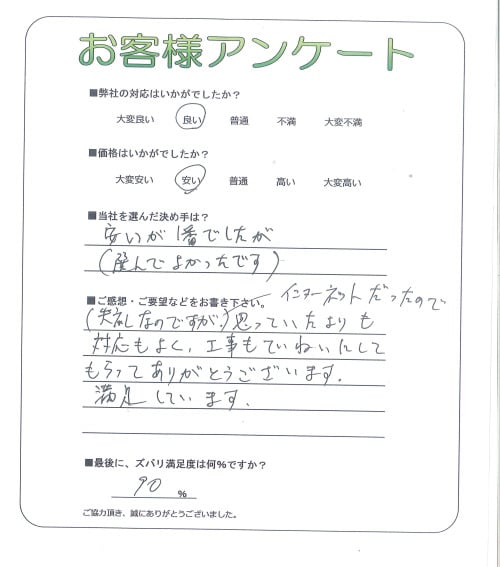 お客様アンケート
■弊社の対応はいかがでしたか？
大変良い 良い 普通 不満 大変不満
■価格はいかがでしたか？
大変安い 安い 普通 高い 大変高い
■当社を選んだ決め手は？
安いが1番でしたが
(選んでよかったです)
■ご感想・ご要望などをお書き下さい。
インターネットだったので
(失礼なのですが、)思っていたよりも
対応もよく、工事もていねいにして
もらってありがとうございます。
満足しています。
■最後に、ズバリ満足度は何%ですか？
90 %
ご協力頂き、誠にありがとうございました。